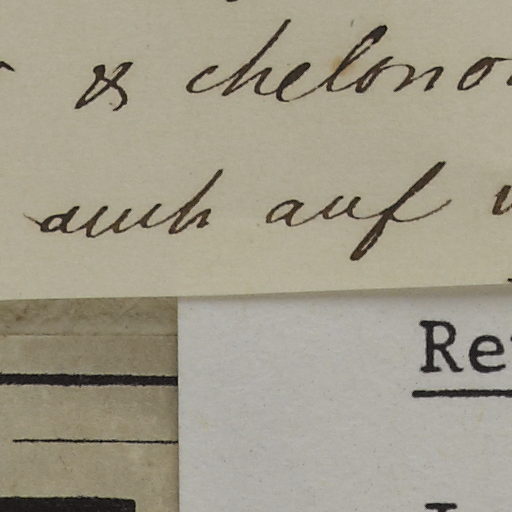 & chelono
auch auf
Re